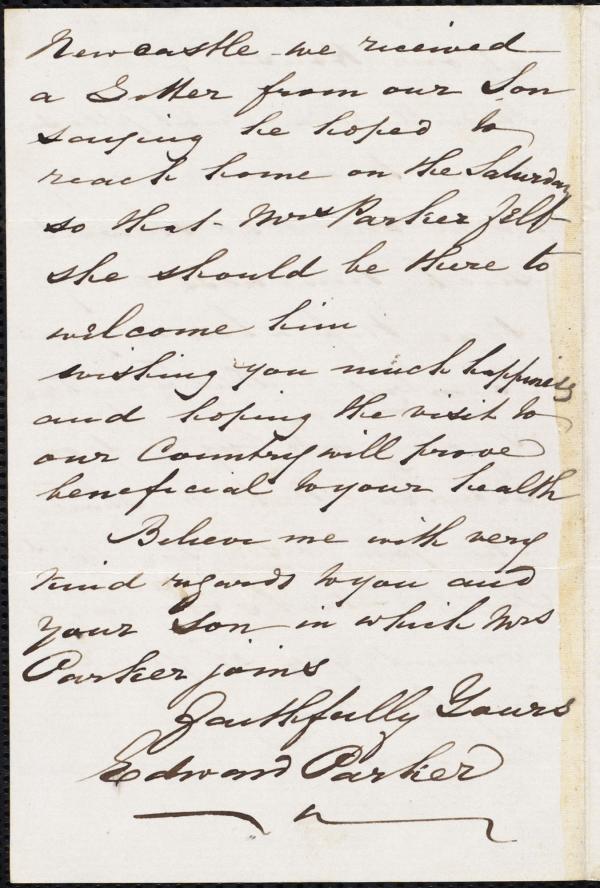 Newcastle - we received
a Letter from our Son
saying he hoped to
reach home on the Saturday
so that - Mrs Parker felt
she should be there to
welcome him
wishing you much happiness
and hoping the visit to
our Country will prove
beneficial to your health
Believe me with very
kind regards to you and
your Son in which Mrs
Parker joins
Faithfully Yours
Edward Parker